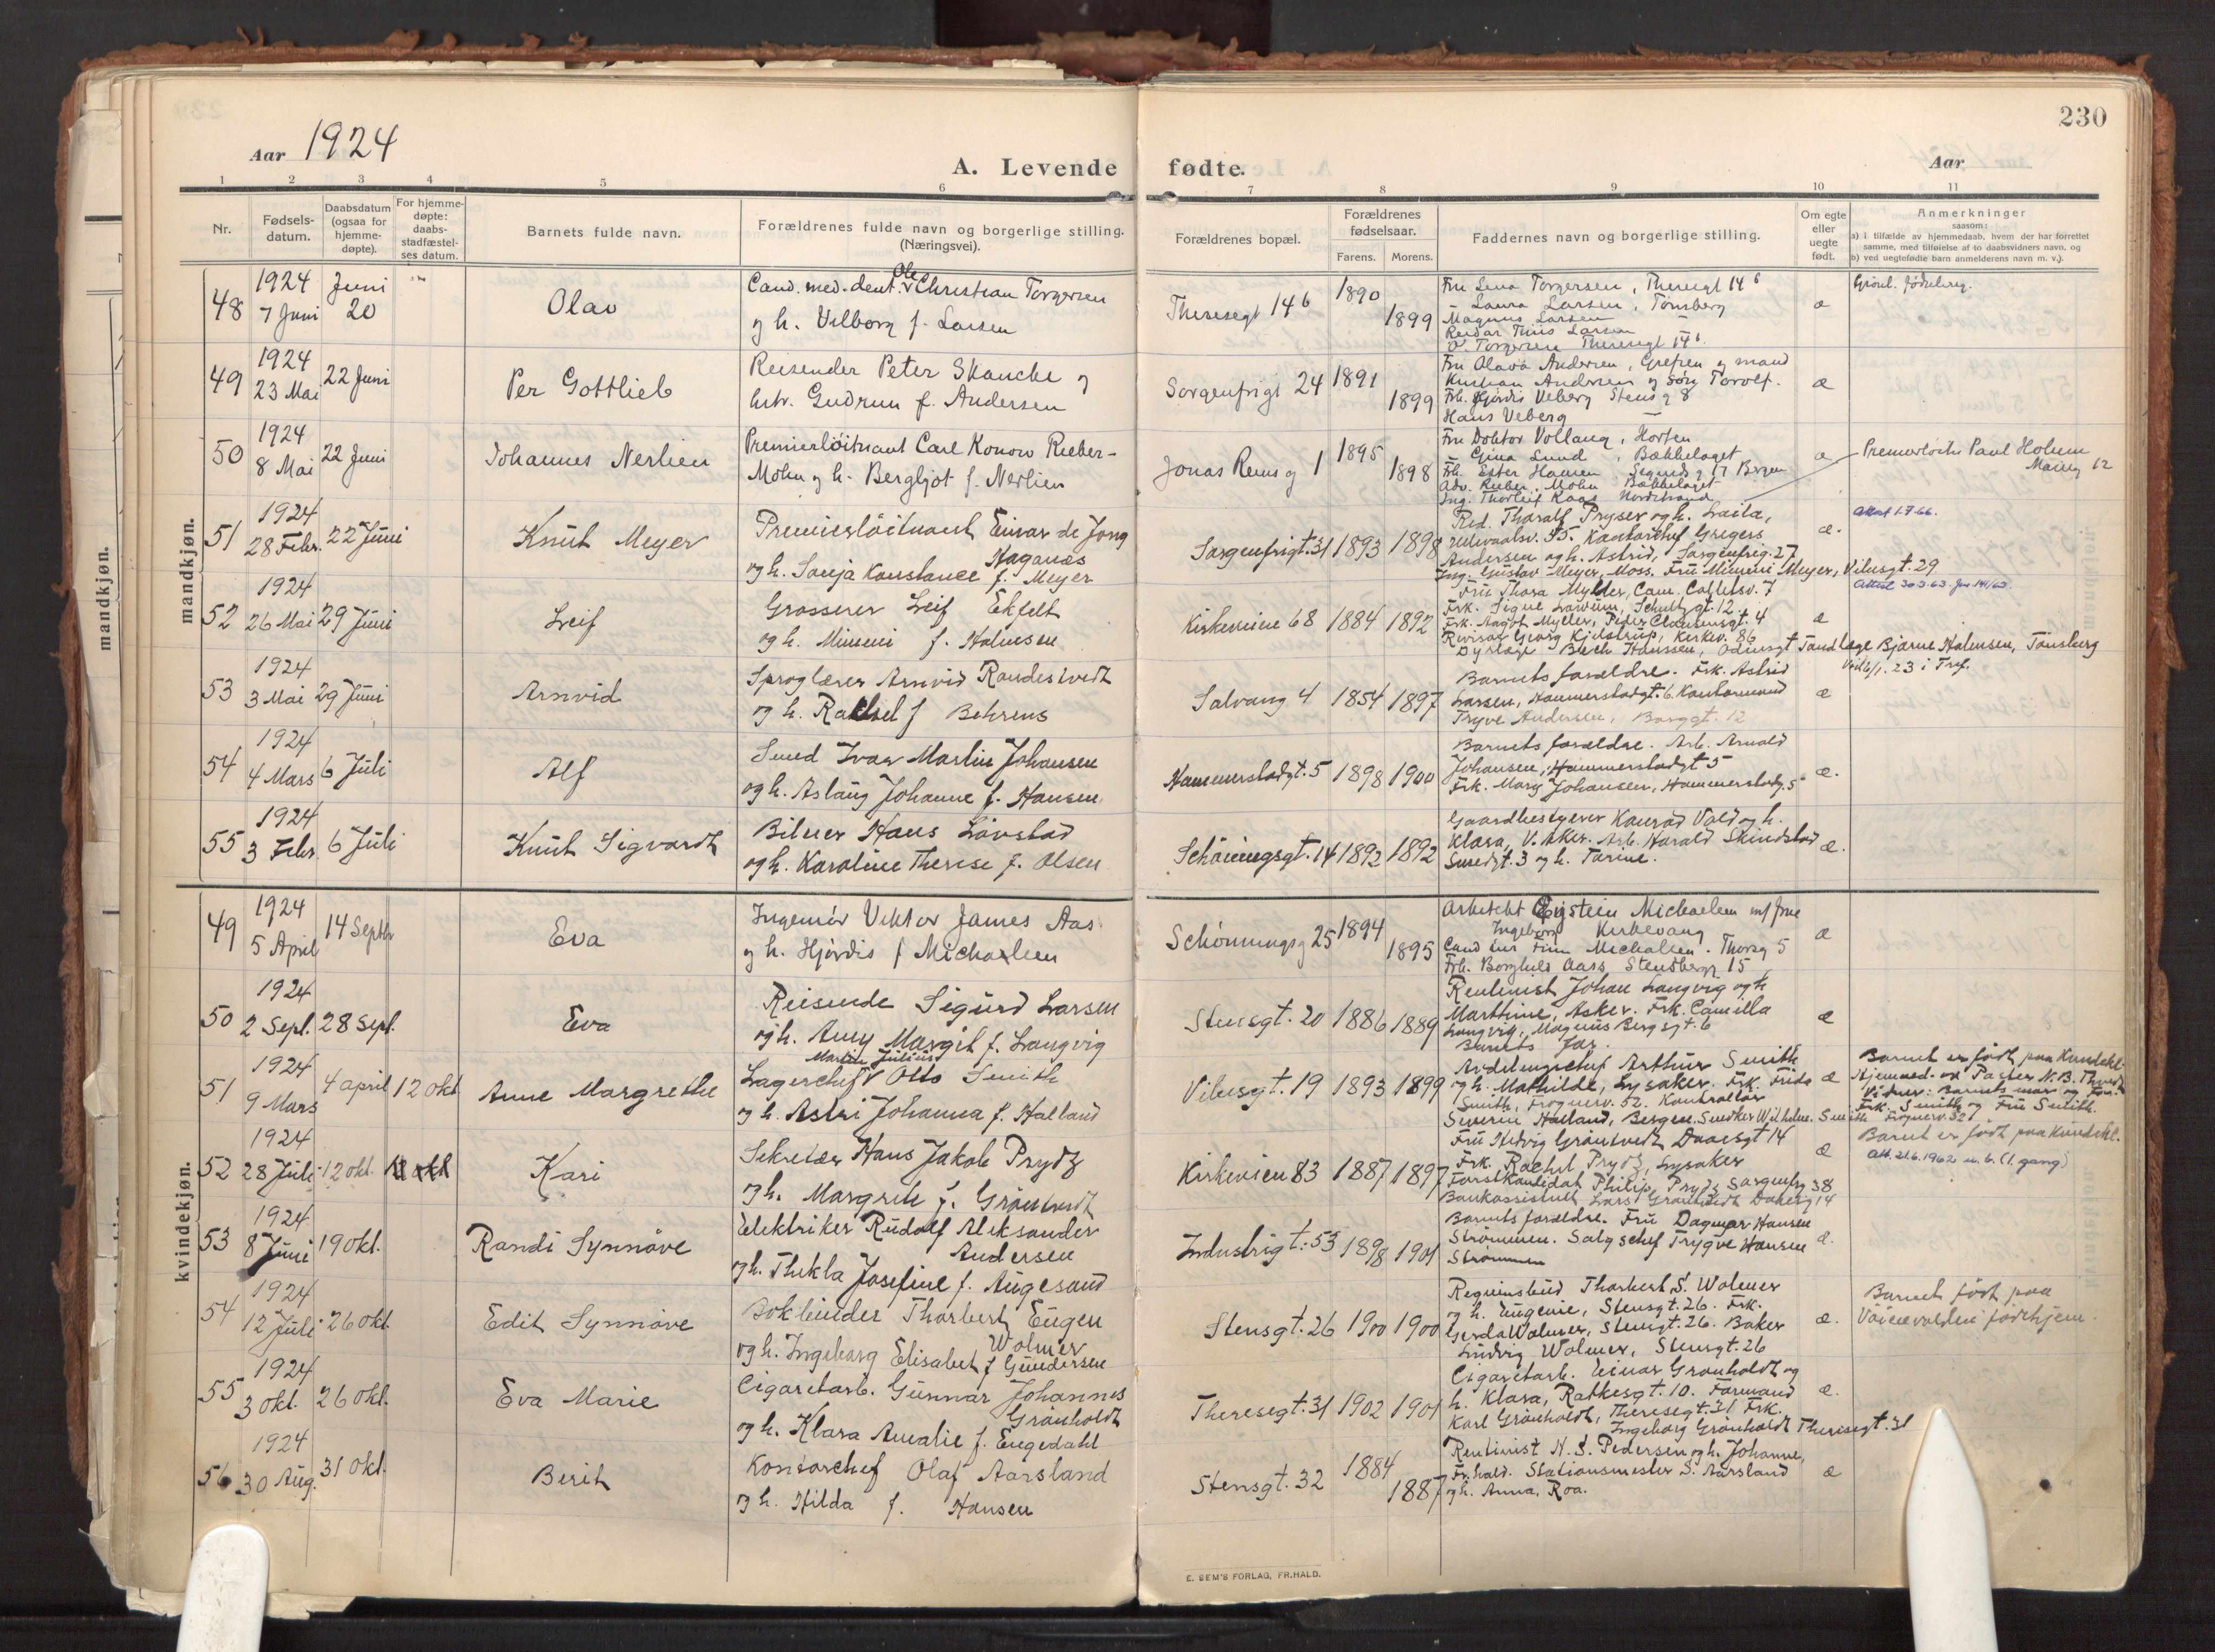 230
Aar 1924
A. Levende fødte.
Aar
1 2 3 4 5 6 7 8 9 10 11
Nr.
Fødsels-
datum.
Daabsdatum
(ogsaa for
hjemme-
døpte).
For hjemme-
døpte:
daabs-
stadfæstel-
ses datum.
Barnets fulde navn.
Forældrenes fulde navn og borgerlige stilling.
(Næringsvei).
Forældrenes bopæl.
Forældrenes
fødselsaar.
Farens. Morens.
Faddernes navn og borgerlige stilling.
Om egte
eller
uegte
født.
Anmerkninger
saasom:
a) i tilfælde av hjemmedaab, hvem der har forrettet
samme, med tilføielse af to daabsvidners navn, og
b) ved uegtefødte barn anmelderens navn m. v.).
mandkjøn.
mandkjøn.
48 1924 7 Juni
Juni 20
Olav
Cand. med. dent. Ole Christian Torgersen
og h. Vilborg f. Larsen
Theresegt 14 b
1890 1899
Fru Lena Torgersen, Theresgt 14 b
- Laura Larsen, Tønsberg
Magnus Larsen
Reidar Thiis Larsen
O. Torgersen Theresgt 14 b.
æ
49 1924 23 Mai
22 Juni
Per Gottlieb
Reisender Peter Skancke og
hstr. Gudrun f. Andersen
Sorgenfrigt 24
1891 1899
Fru Olava Andersen, Grefsen og mand
Kristian Andersen og søn Torolf.
Frk. Hjørdis Veberg Stensg 8
Hans Veberg —
æ
50 1924 8 Mai
22 Juni
Johannes Nerlien
Premierløitnant Carl Konow Rieber-
Mohn og h. Bergljot f. Nerlien
Jonas Reins g 1
1895 1898
Fru Doktor Vollang, Horten
- Gina Lund, Bækkelaget
Frk. Ester Hansen Sigurds g 17 Bergen
Adv. Rieber-Mohn Bækkelaget
Ing. Thorleif Raas Nordstrand
æ
Premierløitn Paul Holum
12
51 1924 28 Febr.
22 Juni
Knut Meyer
Premierløitnant Einar de Jong
Haganæs
og h. Sonja Konstance f. Meyer
Sorgenfrigt. 31
1893 1898
Red. Tharalf Pryser og h. Laila,
Ullevaalsv. 55. Kontorchef Gregers
Andersen og h. Astrid, Sorgenfrig. 27
Ing. Gustav Meyer, Moss. Fru Mimmi Meyer, Vibesgt. 29
æ.
Attest 1.7.66.
52 1924 26 Mai
29 Juni
Leif
Grosserer Leif Ekfelt
og h. Mimmi f. Halmsen
Kirkeveien 68
1884 1892
Fru Thora Myhler, Cam. Collettsv. 7
Frk. Signe Lawum, Schultzgt. 12.
Frk. Aagot Myhler, Peder Claussensgt. 4
Revisor Georg Kjelstrup, Kirkev. 86
Dyrlæge Bech Hanssen, Odinsgt Tandlæge Bjarne Halmsen, Tønsberg
æ
53 1924 3 Mai
29 Juni
Arnvid
Sproglærer Arnvid Randestvedt
og h. Rakhel f Behrens
Solvang 4
1854 1897
Barnets forældre. Frk. Astrid
Larsen, Hammerstadgt. 6. Kontormand
Tryve Andersen, Borggt. 12
æ
54 1924 4 Mars
6 Juli
Alf
Smed Ivar Martin Johansen
og h. Aslaug Johanne f. Hansen
Hammerstadgt. 5
1898 1900
Barnets forældre. Arb. Arnold
Johansen, Hammerstadgt 5
Frk. Mary Johansen, Hammerstadg. 5
æ.
55 1924 3 Febr.
6 Juli
Knut Sigvardt
Bileier Hans Løvstad
og h. Karoline Therese f. Olsen
Schøningsgt. 14
1892 1892
Gaardbestyrer Konrad Vold og h.
Klara, V. Aker. Arb. Harald Skindstad
Smedgt. 3 og h. Tarine.
æ.
kvindekjøn.
49 1924 5 April
14 Septbr
Eva
Ingeniør Viktor James Aas
og h. Hjørdis f Michaelsen
Schøningsg 25
1894 1895
Arkitekt Øystein Michaelsen m/ frue
Ingeborg Kirkevang
Cand jur Finn Michalsen. Thorsg 5
Frk. Borghild Aass Stensberg 15
æ
50 1924 2 Sept.
28 Sept.
Eva
Reisende Sigurd Larsen
og h. Amy Margit f. Langvig
Stensgt. 20
1886 1889
Rentenist Johan Langvig og h
Marthine, Asker. Frk. Camilla
Langvig, Magnus Bergsgt. 6
Barnets far.
æ
51 1924 9 Mars
4 april
12 okt
Anne Margrethe
Martin Julius
Lagerchef Otto Smith
og h. Astri Johanna f. Halland
Vibesgt. 19
1893 1899
Avdelingschef Arthur Smith
og h. Mathilde, Lysaker. Frk. Frida
Smith, Frognerv. 52. Kontrollør
Severin Halland, Bergen. Snedker Wilhelm Smith Frognerv. 52
æ
Barnet er født paa Kvindekl.
Hjemmed. av Pastor N. B.
Vidner: Barnets mor og
Frk. Smith og Fru Smith.
52 1924 28 Juli
12 okt.
Kari
Sekretær Hans Jakob Prydz
og h. Margrete f. Grøntvedt
Kirkeveien 83
1887 1897
Fru Hedvig Grøntvedt Daaesgt 14
Frk. Rachel Prydz, Lysaker
Forstkandidat Philip Prydz Sorgenfrig 38
Bankassistent Lars Grøntvedt Daaesg 14
æ
Barnet er født paa Kvindekl.
Att. 21.6.1962 u. b. (1. gang)
53 1924 8 Juni
19 okt.
Randi Synnøve
Elektriker Rudolf Aleksander
Andersen
og h. Thekla Josefine f. Augesand
Industrigt. 53
1898 1901
Barnets forældre. Fru Dagmar Hansen
Strømmen. Salgschef Trygve Hansen
Strømmen
æ.
54 1924 12 Juli
26 okt.
Edit Synnøve
Bokbinder Thorbert Eugen
Wolmer
og h. Ingeborg Elisabet f Gundersen
Stensgt. 26
1900 1900
Regningsbud Thorbert S. Wolmer
og h. Eugenie, Stensgt. 26. Frk.
Gerda Wolmer, Stensgt. 26. Baker
Ludvig Wolmer, Stensgt. 26
æ.
Barnet født paa
Vøienvoldens fødehjem.
55 1924 3 okt.
26 okt.
Eva Marie
Cigaretarb. Gunnar Johannes
Grønholdt
og h. Klara Amalie f. Engedahl
Theresegt. 31
1902 1901
Cigaretarb. Einar Grønholdt og
h. Klara, Ratkesgt. 10. Formand
Karl Grønholdt, Theresegt. 31 Frk.
Ingeborg Grønholdt Theresegt. 31
æ.
56 1924 30 Aug.
31 okt.
Berit
Kontorchef Olaf Aarsland
og h. Hilda f. Hansen
Stensgt. 32
1884 1887
Rentinist N. S. Pedersen og h. Johanne,
Fr.hald. Stationsmester S. Aarsland
og h. Anna, Roa.
æ
E. SEM'S FORLAG, FR.HALD.